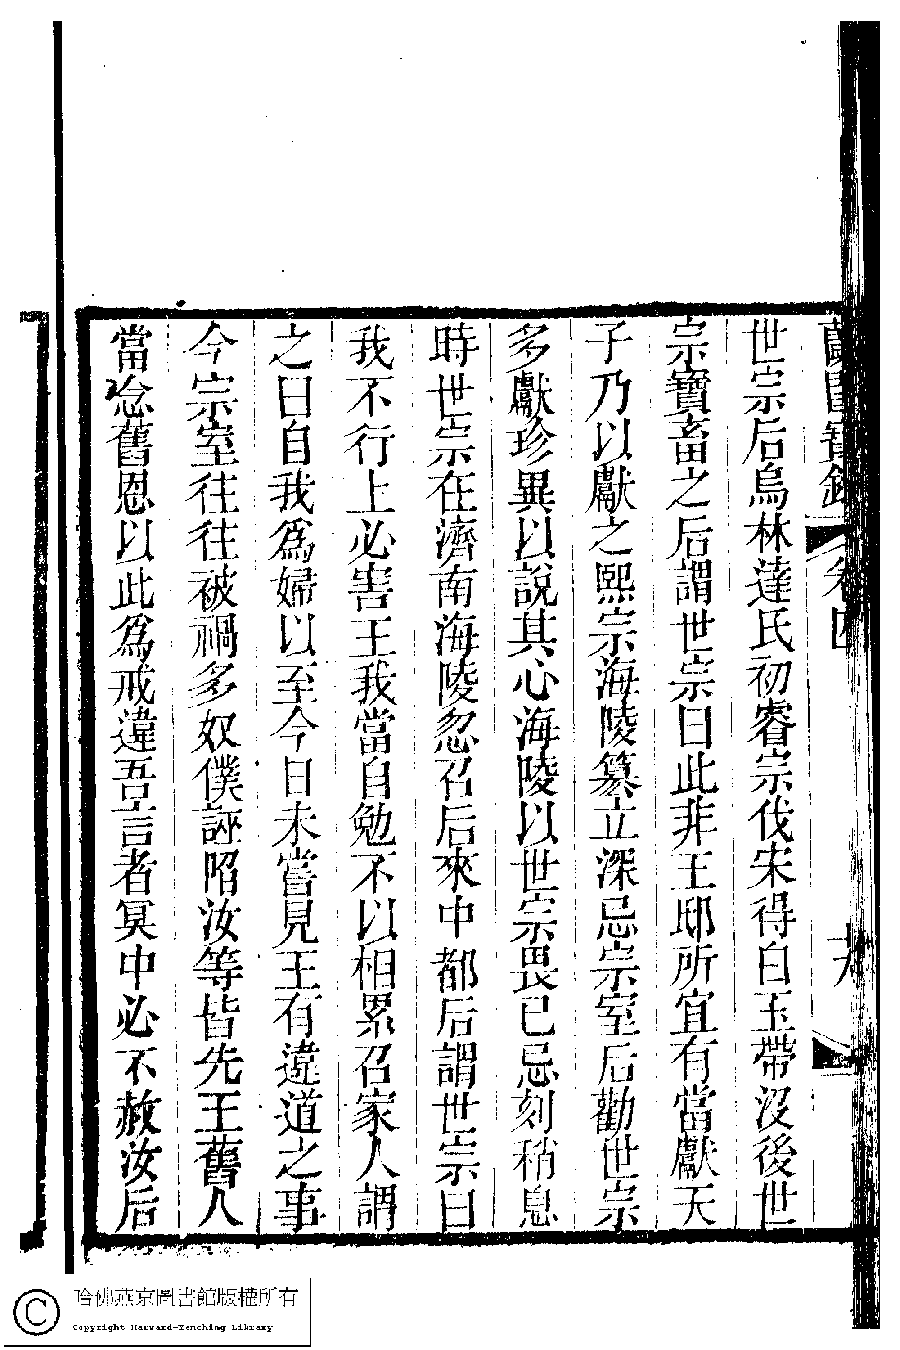 蘭閨寶録 卷四
世宗后烏林達氏初睿宗伐宋得白玉帶沒後世
宗寶畜之后謂世宗曰此非王邸所宜有當獻天
子乃以獻之熙宗海陵篡立深忌宗室后勸世宗
多獻珍異以說其心海陵以世宗畏已忌刻稍息
時世宗在濟南海陵忽召后來中都后謂世宗曰
我不行上必害王我當自勉不以相累召家人謂
之曰自我爲婦以至今日未嘗見王有違道之事
今宗室往往被禍多奴僕誣陷汝等皆先王舊人
當念舊恩以此爲戒違吾言者冥中必不赦汝后
哈佛燕京圖書館版權所有
Copyright Harvard-Yenching Library